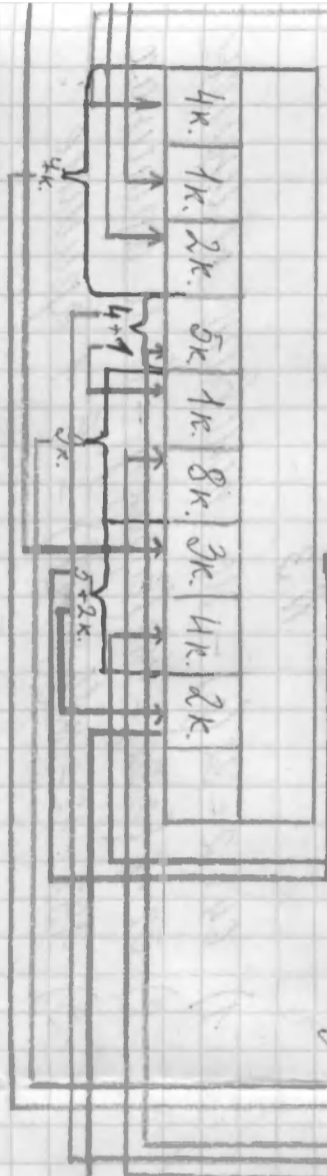 4к. 1к. 2к. 5к. 1к. 8к. 3к. 4к. 2к.
4к.
4+1
5+2к.